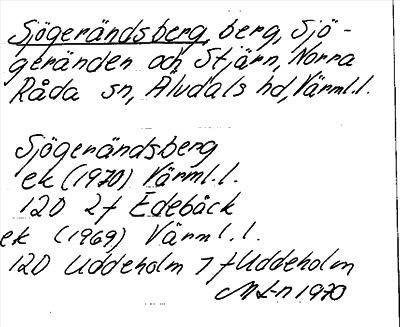 Sjögerändsberg, berg, Sjö-
geränden och Stjärn, Norra
Råda sn, Älvdals hd, Värml.l.
Sjögerändsberg
ek (1970) Värml.l.
12D 2f Edebäck
ek (1969) Värml.l.
12D Uddeholm 7 f Uddeholm
1970